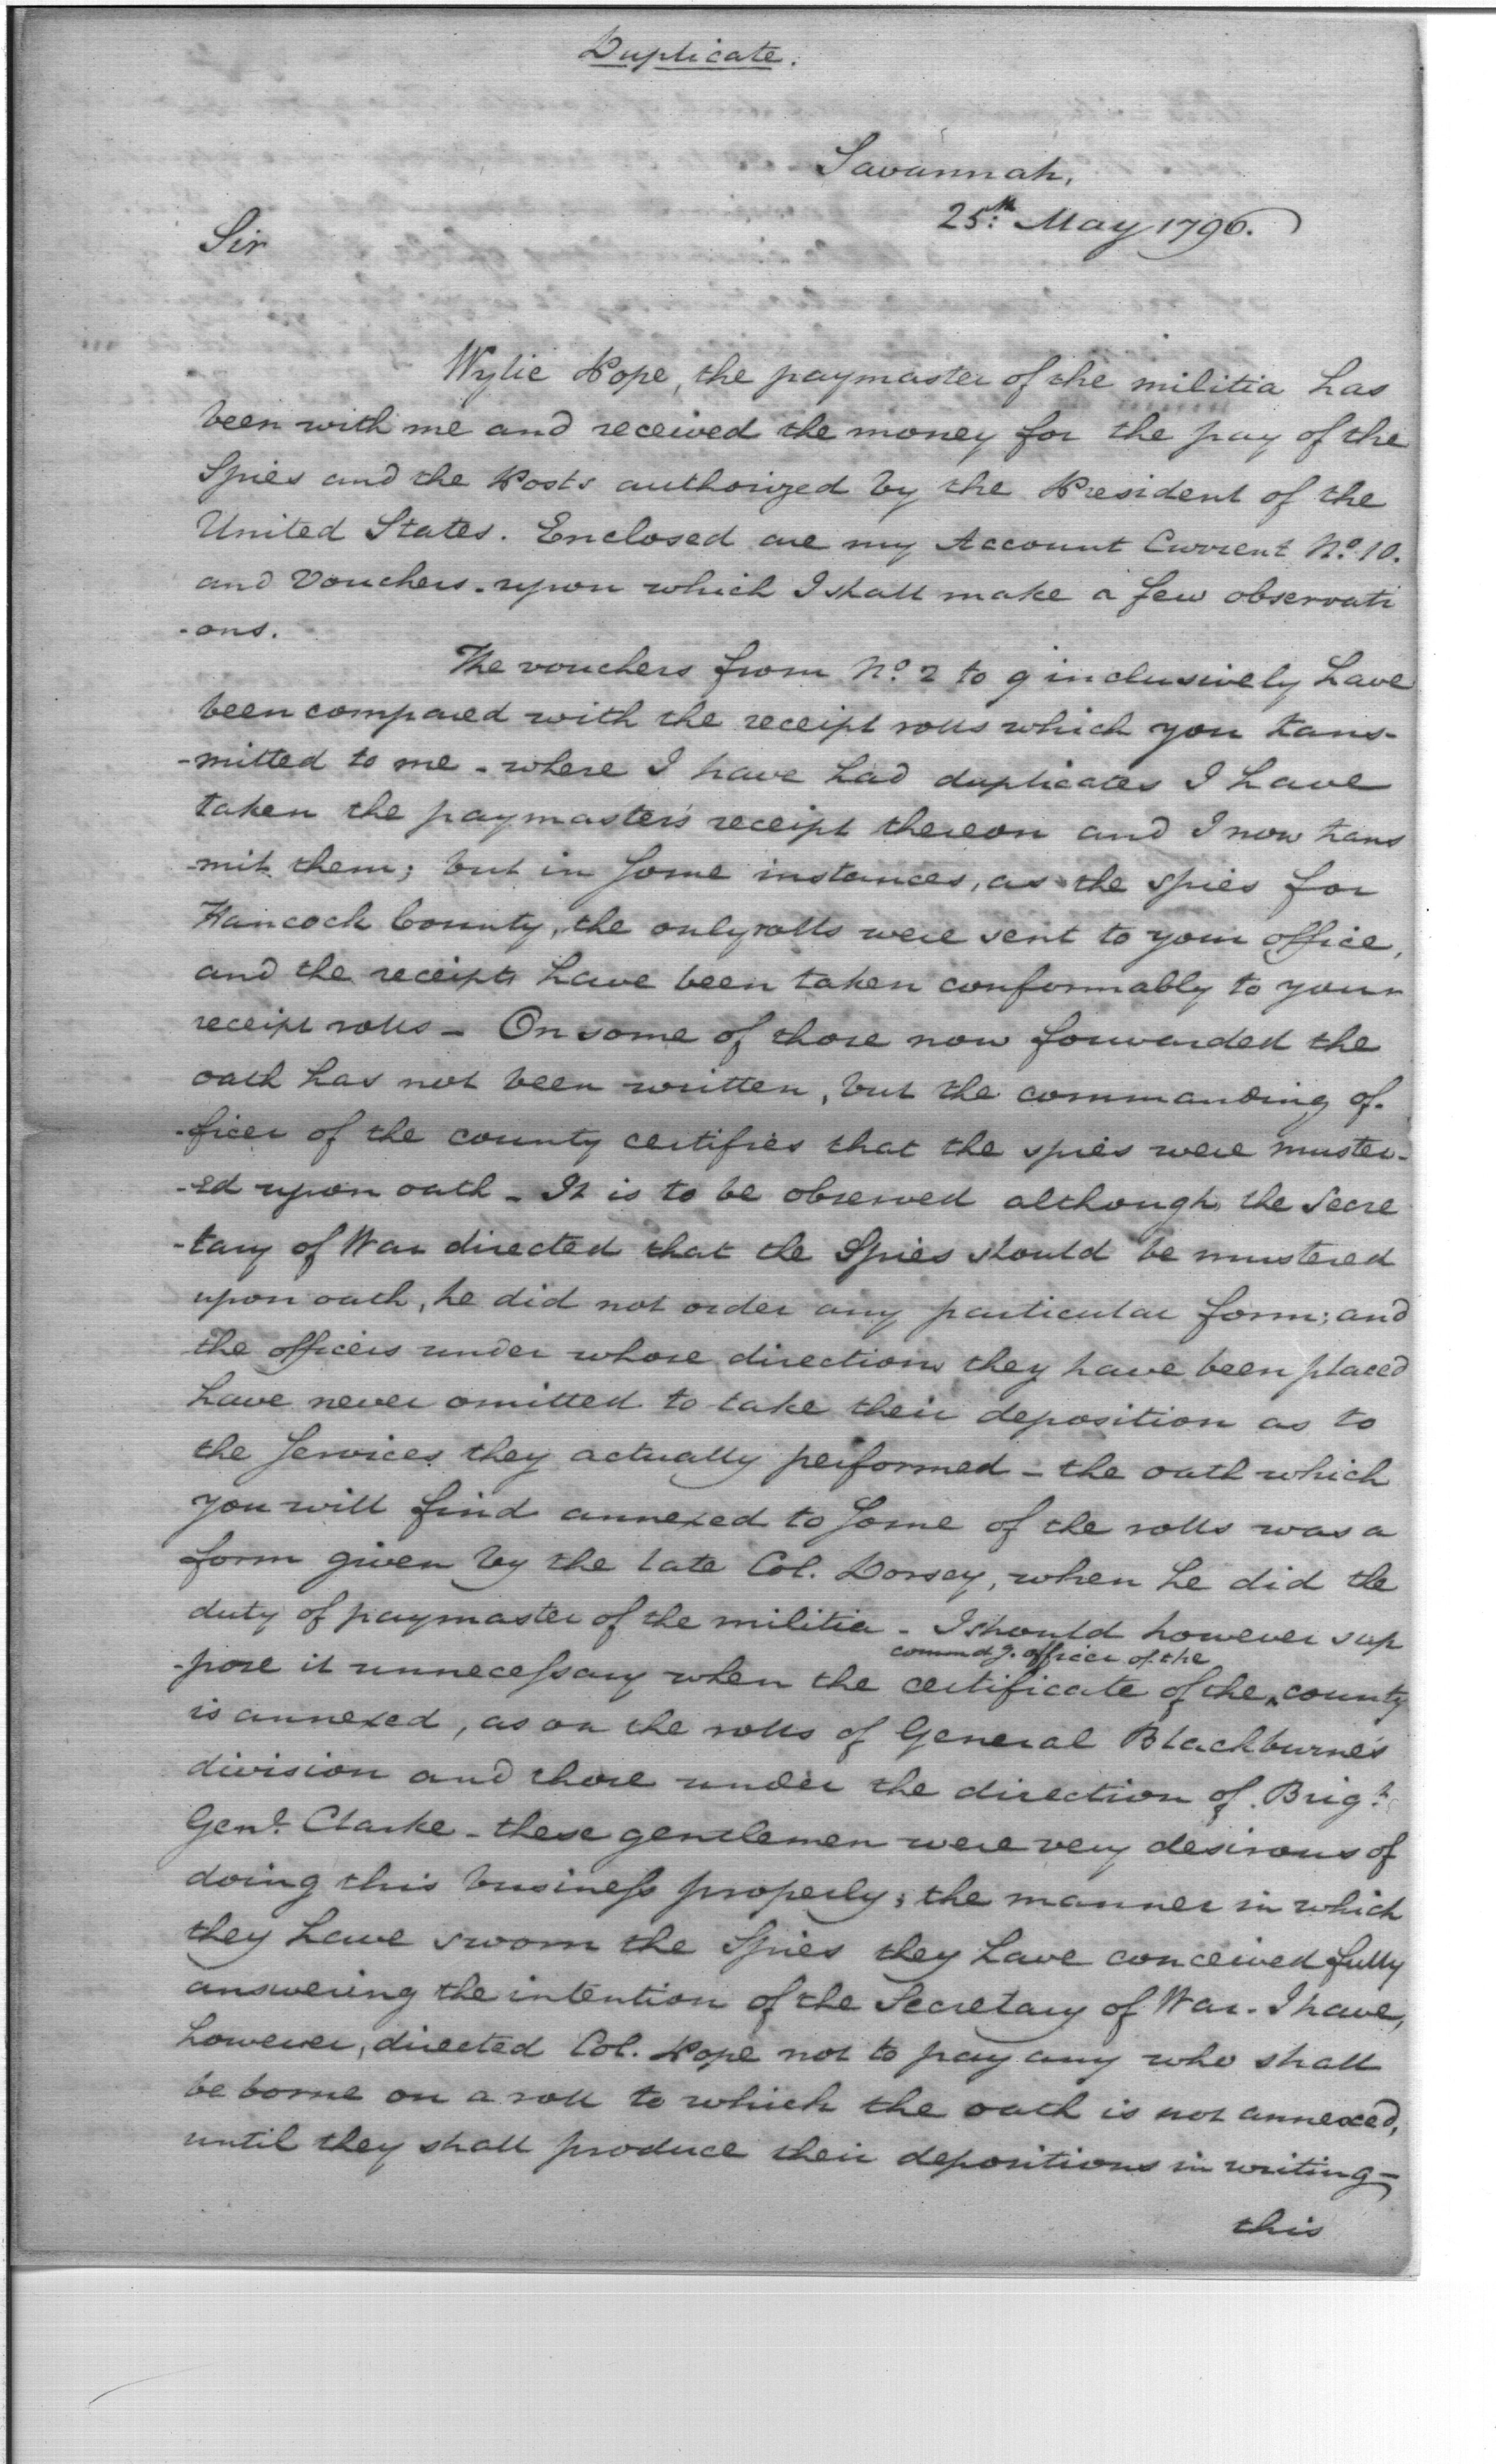 Duplicate.
Savannah,
25th: May 1796.
Sir
Wylie Pope, the paymaster of the militia has
been with me and received the money for the pay of the
Spies and the Posts authorized by the President of the
United States. Enclosed are my Account Current No. 10.
and Vouchers - upon which I shall make a few observati
-ons.
The vouchers from No. 2 to 9 inclusively have
been compared with the receipt rolls which you trans-
-mitted to me - where I have had duplicates I have
taken the paymaster's receipt thereon and I now trans
-mit them; but in some instances, as the spies for
Hancock County, the only rolls were sent to your office,
and the receipts have been taken conformably to your
receipt rolls - On some of those now forwarded the
oath has not been written, but the commanding of-
-ficer of the county certifies that the spies were muster-
-ed upon oath - It is to be observed although the Secre
-tary of War directed that the Spies should be mustered
upon oath, he did not order any particular form; and
the officers under whose directions they have been placed
have never omitted to take their deposition as to
the services they actually performed - the oath which
you will find annexed to some of the rolls was a
form given by the late Col. Dorsey, when he did the
duty of paymaster of the militia - I should however sup
commdg. officer of the
-pose it unnecessary when the certificate of the ^ county
is annexed, as on the rolls of General Blackburne's
division and those under the direction of Brigr.
Genl. Clarke - these gentlemen were very desirous of
doing this business properly; the manner in which
they have sworn the Spies they have conceived fully
answering the intention of the Secretary of War. I have,
however, directed Col. Pope not to pay any who shall
be borne on a roll to which the oath is not annexed,
until they shall produce their depositions in writing -
this